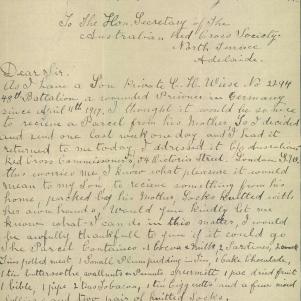 To The Hon. Secretary of the
Australian Red Cross Society
North Terrace
Adelaide.
Dear Sir.
As I have a Son Private C. H. Wiese No 2294
48th Battalion a wounded Prisoner in Germany
since April 11th 1917. I thought it would be so nice
to recieve a Parcel from his Mother, So I decided
and sent one last week one day and I had it
returned to me today, I adressed it C/o Australian
Red Cross Commissioners, 54 Victoria Street. London S.W.
this worries me, I know what pleasure it would
mean to my Son to recieve something from his
home, packed by his Mother, Socks knitted with
her own hands, Would you kindly let me
know what I can do in this matter, I would
be awfully thankfull to you if it could go
The Parcel Contains 1 Cocoa & Milk 2 Sardines,
tins potted meat 1 Small Plum pudding in tin, 1 cake Chocolate,
1 tin butterscotch walnuts 1 pac dried fruit
1 bible, 1 pipe 2 tins Tobacco, 1 tin Ciggaretts and a few most
pair of knitted Socks